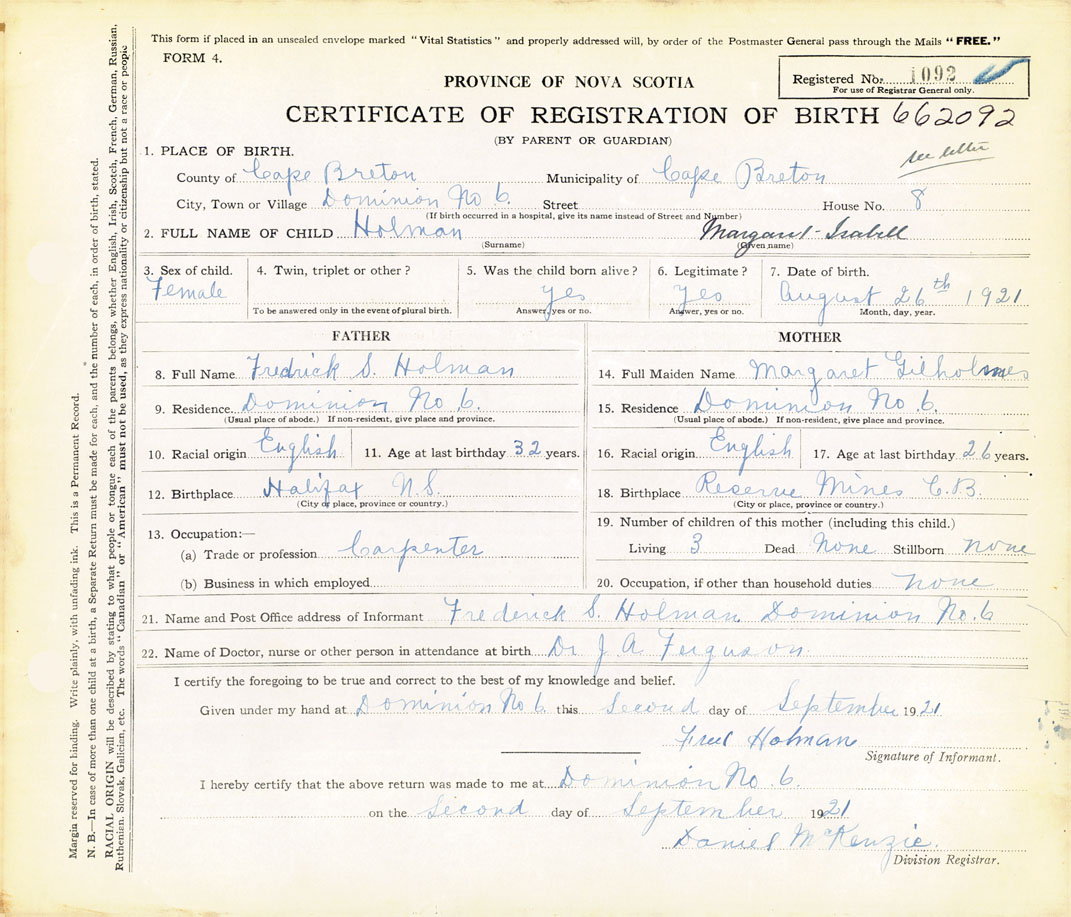 This form if placed in an unsealed envelope marked "Vital Statistics" and properly addressed will, by order of the Postmaster General pass through the Mails "FREE."
FORM 4.
Registered No. 1092
For use of Registrar General only.
PROVINCE OF NOVA SCOTIA
CERTIFICATE OF REGISTRATION OF BIRTH 662092
(BY PARENT OR GUARDIAN)
see letter
1. PLACE OF BIRTH.
County of Cape Breton Municipality of Cape Breton
City, Town or Village Dominion No 6. Street House No. 8
(If birth occurred in a hospital, give its name instead of Street and Number)
2. FULL NAME OF CHILD Holman Margaret-Isabell
(Surname) (Given name)
3. Sex of child. 4. Twin, triplet or other? 5. Was the child born alive? 6. Legitimate? 7. Date of birth.
Female yes yes August 26th 1921
To be answered only in the event of plural birth. Answer, yes or no. Answer, yes or no. Month, day, year.
FATHER
8. Full Name Fredrick S. Holman
9. Residence Dominion No 6.
(Usual place of abode.) If non-resident, give place and province.
10. Racial origin English 11. Age at last birthday 32 years.
12. Birthplace Halifax N.S.
(City or place, province or country.)
13. Occupation:—
(a) Trade or profession Carpenter
(b) Business in which employed
MOTHER
14. Full Maiden Name Margaret Gilholmes
15. Residence Dominion No 6.
(Usual place of abode.) If non-resident, give place and province.
16. Racial origin English 17. Age at last birthday 26 years.
18. Birthplace Reserve Mines C.B.
(City or place, province or country.)
19. Number of children of this mother (including this child.)
Living 3 Dead None Stillborn none
20. Occupation, if other than household duties none
21. Name and Post Office address of Informant Frederick S. Holman Dominion No. 6
22. Name of Doctor, nurse or other person in attendance at birth Dr J A. Ferguson
I certify the foregoing to be true and correct to the best of my knowledge and belief.
Given under my hand at Dominion No 6. this Second day of September 1921
Fred Holman
Signature of Informant.
I hereby certify that the above return was made to me at Dominion No 6.
on the Second day of September 1921
Daniel McKenzie.
Division Registrar.
Margin reserved for binding. Write plainly, with unfading ink. This is a Permanent Record.
N. B.—In case of more than one child at a birth, a Separate Return must be made for each, and the number of each, in order of birth, stated.
RACIAL ORIGIN will be described by stating to what people or tongue each of the parents belongs, whether English, Irish, Scotch, French, German, Russian,
Ruthenian, Slovak, Galician, etc. The words "Canadian" or "American" must not be used, as they express nationality or citizenship but not a race or people